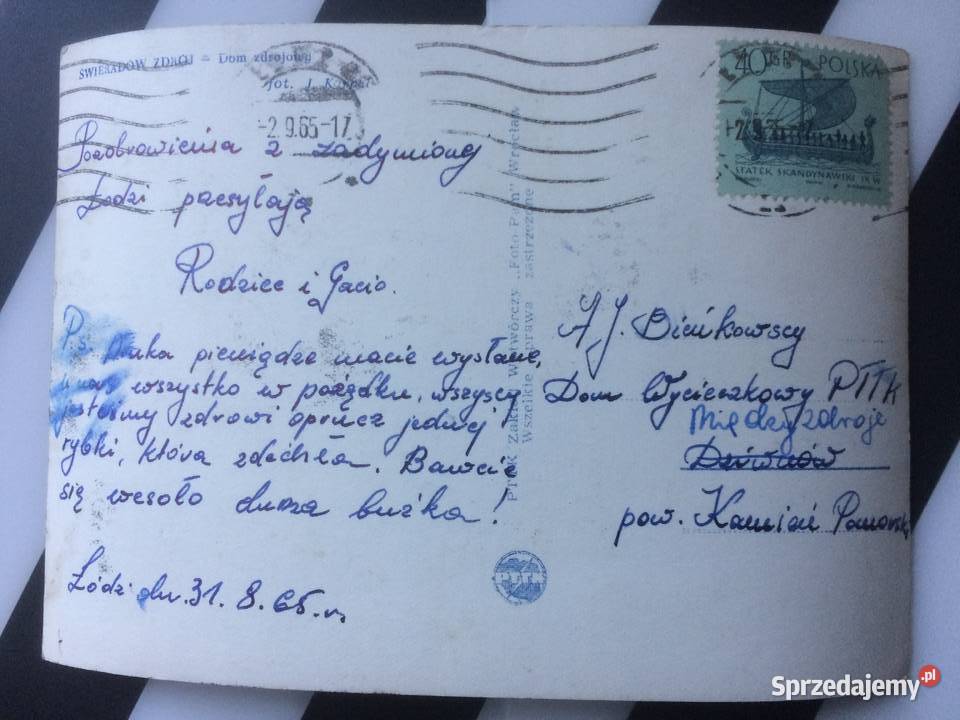 ŚWIERADÓW ZDRÓJ – Dom zdrojowy
fot. J. Korpal
-2.9.65-17
40 GR
POLSKA
STATEK SKANDYNAWSKI IX W
Pozdrowienia z zadymionej
Łodzi przesyłają
Rodzice i Gacio.
P.s. pieniądze macie wysłane,
u nas wszystko w porządku, wszyscy
jesteśmy zdrowi oprócz jednej
rybki, która zdechła. Bawcie
się wesoło buźka!
Łódź dn. 31. 8. 65. r.
PTTK Zakład Wytwórczy „Foto-Pam" Wrocław
Wszelkie prawa zastrzeżone
A.J. Bieńkowscy
Dom Wycieczkowy PTTK
Międzyzdroje
Dziwnów
pow. Kamień Pomorski
PTTK
Sprzedajemy.pl